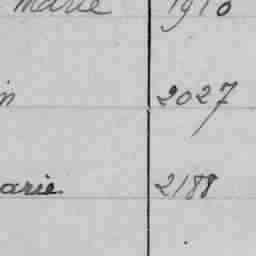 Marie 1910
in 2027
arie 2188